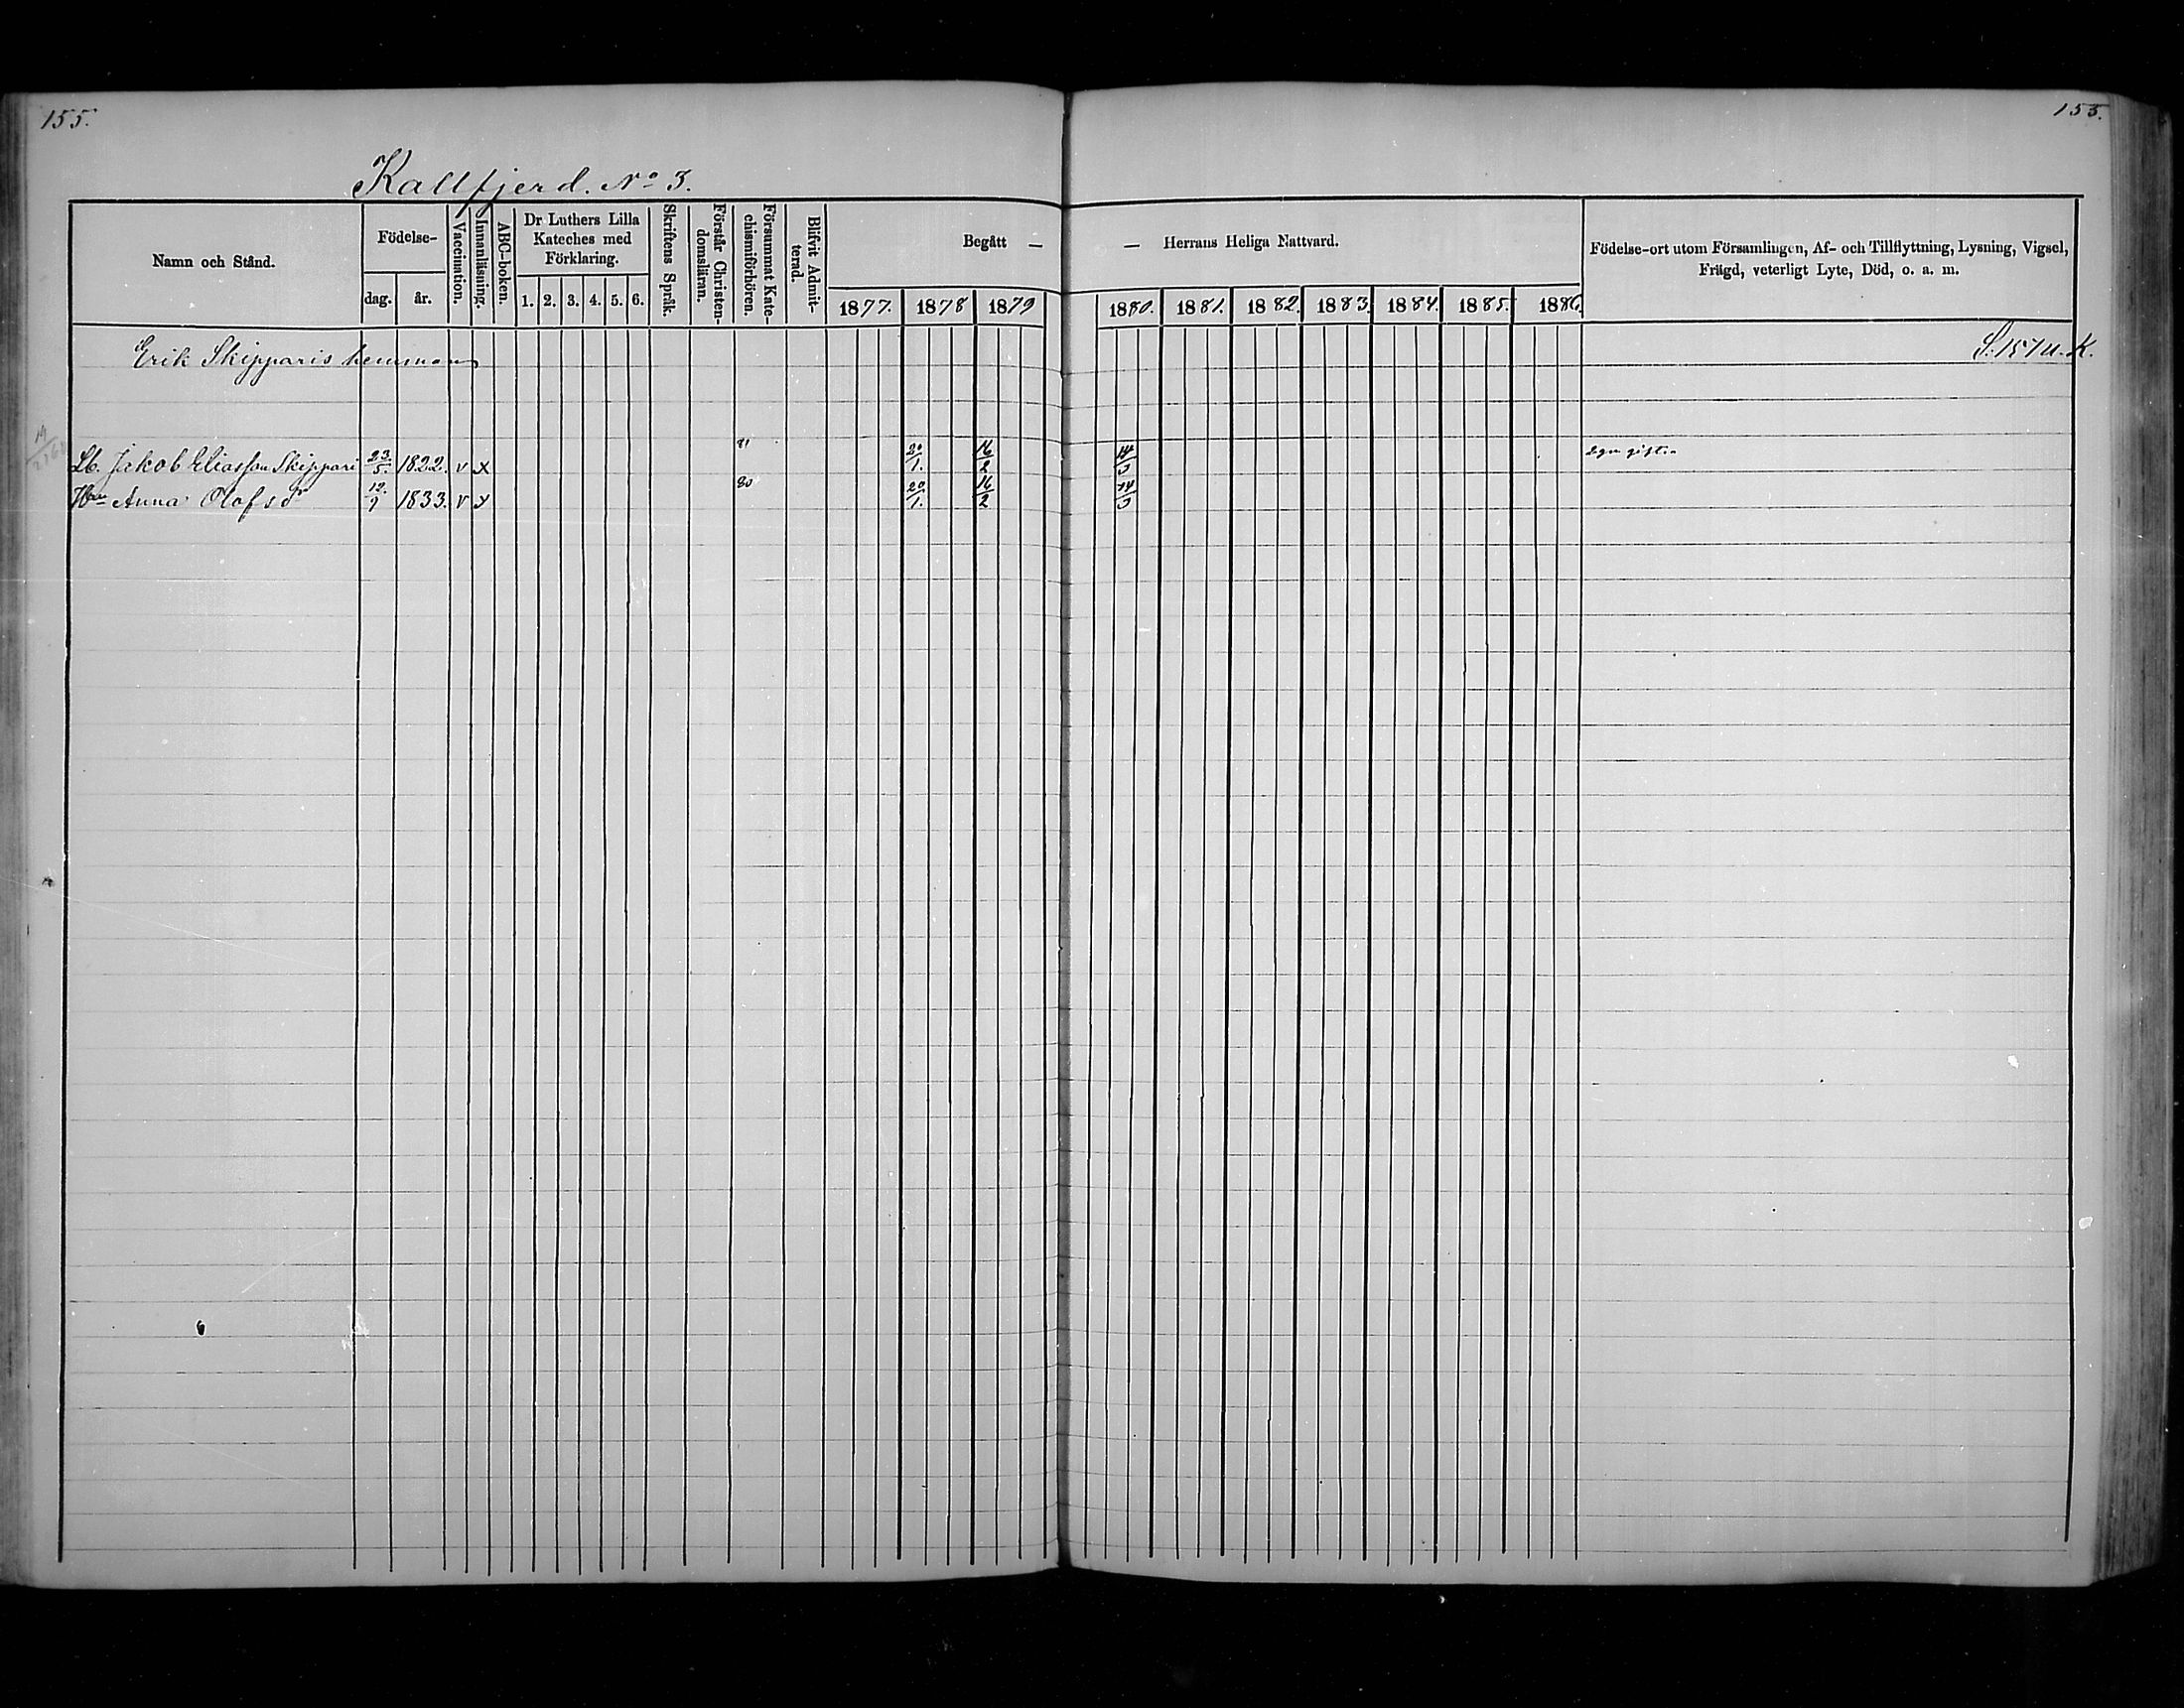 155.
155.
Kallfjerd. No 3.
Namn och Stånd.
Födelse-
dag.
år.
Vaccination.
Innanläsning.
ABC-boken.
Dr Luthers Lilla
Kateches med
Förklaring.
1. 2. 3. 4. 5. 6.
Skriftens Språk.
Förstår Christen-
domsläran.
Försummat Kate-
chismiförhören.
Blifvit Admit-
terad.
Begått —
— Herrans Heliga Nattvard.
1877. 1878 1879
1880. 1881. 1882. 1883. 1884. 1885. 1886.
Födelse-ort utom Församlingen, Af- och Tillflyttning, Lysning, Vigsel,
Frägd, veterligt Lyte, Död, o. a. m.
Erik Skipparis hemman
S. 157 u. K.
Lb. Jakob Eliasson Skippari 23/5. 1822. v x 81 20/1. 16/2 14/3
Hu Anna Olofsdr 12./9 1833. v x 80 20/1. 16/2 14/3